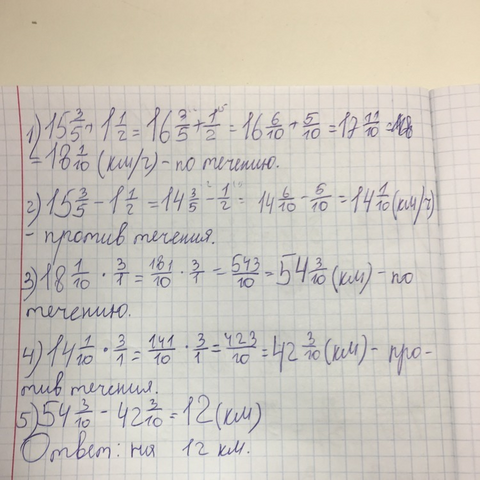 1) 15 3/5 + 1 1/2 = 16 3/5 + 1/2 = 16 6/10 + 5/10 = 17 11/10 =
= 18 1/10 (км/ч) - по течению.
2) 15 3/5 - 1 1/2 = 14 3/5 - 1/2 = 14 6/10 - 5/10 = 14 1/10 (км/ч)
- против течения.
3) 18 1/10 · 3/1 = 181/10 · 3/1 = 543/10 = 54 3/10 (км) - по
течению.
4) 14 1/10 · 3/1 = 141/10 · 3/1 = 423/10 = 42 3/10 (км) - про-
тив течения.
5) 54 3/10 - 42 3/10 = 12 (км)
Ответ: на 12 км.